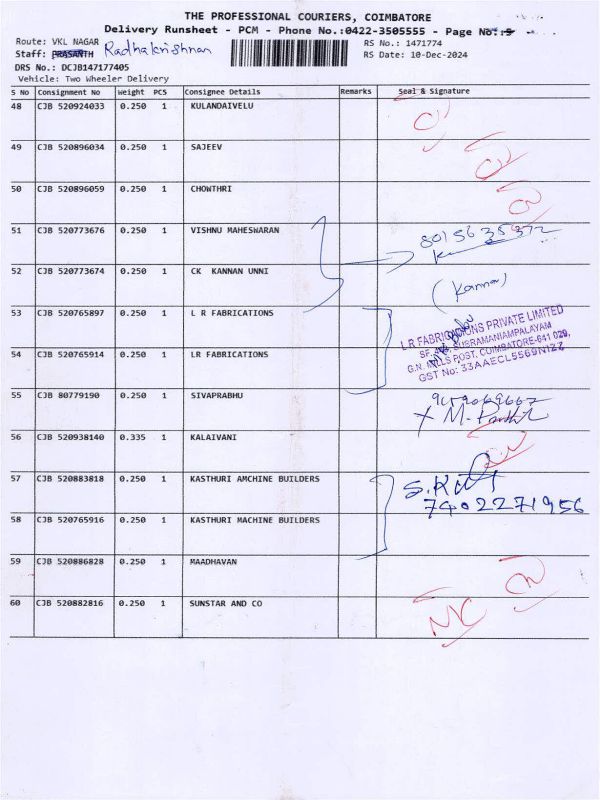 THE PROFESSIONAL COURIERS, COIMBATORE
Delivery Runsheet - PCM - Phone No.:0422-3505555 - Page No.:5
Route: VKL NAGAR
RS No.: 1471774
Staff: PRASANTH Radhakrishnan
RS Date: 10-Dec-2024
DRS No.: DCJB147177405
Vehicle: Two Wheeler Delivery
S No Consignment No Weight PCS Consignee Details Remarks Seal & Signature
48 CJB 520924033 0.250 1 KULANDAIVELU
49 CJB 520896034 0.250 1 SAJEEV
50 CJB 520896059 0.250 1 CHOWTHRI
51 CJB 520773676 0.250 1 VISHNU MAHESWARAN 8015635372
52 CJB 520773674 0.250 1 CK KANNAN UNNI (Kannan)
53 CJB 520765897 0.250 1 L R FABRICATIONS
L.R FABRICATIONS PRIVATE LIMITED
SUBRAMANIAMPALAYAM
54 CJB 520765914 0.250 1 LR FABRICATIONS
G.N. MILLS POST, COIMBATORE-641 029,
GST No: 33AAECL5569N1ZZ
55 CJB 80779190 0.250 1 SIVAPRABHU
56 CJB 520938140 0.335 1 KALAIVANI
57 CJB 520883818 0.250 1 KASTHURI AMCHINE BUILDERS
7402271956
58 CJB 520765916 0.250 1 KASTHURI MACHINE BUILDERS
59 CJB 520886828 0.250 1 MAADHAVAN
60 CJB 520882816 0.250 1 SUNSTAR AND CO